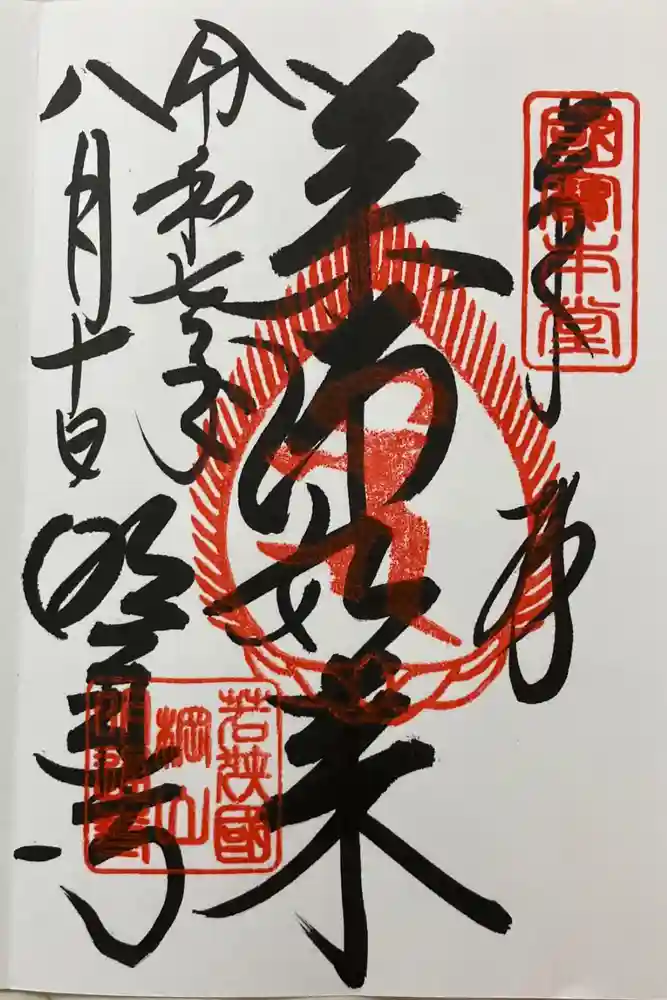 奉拝
國寶本堂
薬師如来
令和七年
八月十日
明通寺
若狭國
棡山
明通寺